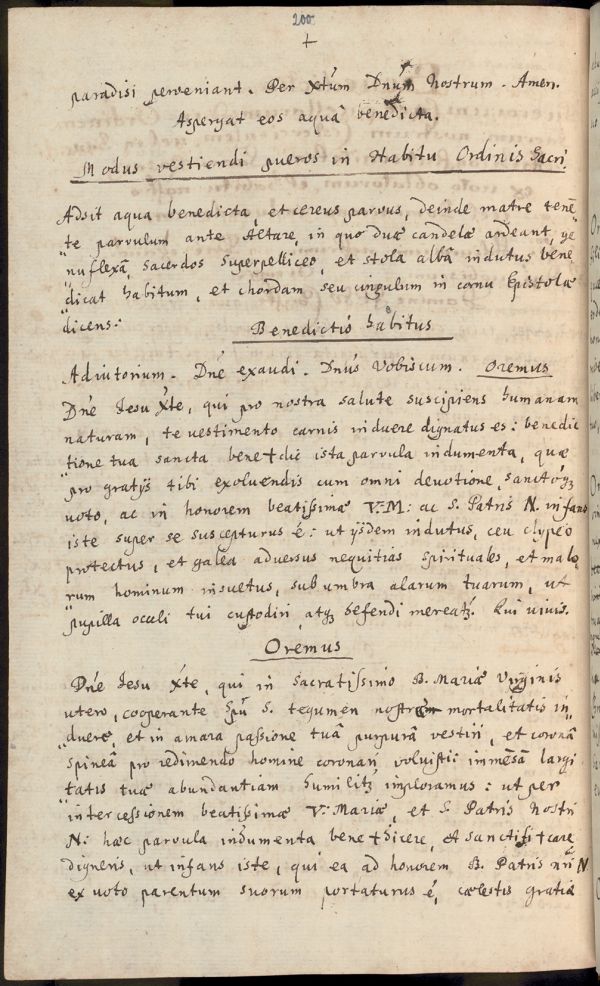 200
+
paradisi perveniant. Per Xtum Dnum Nostrum. Amen.
Aspergat eos aquâ benedicta.
Modus vestiendi pueros in Habitu Ordinis Sacri.
Adsit aqua benedicta, et cereus parvus, deinde matre tenē
te parvulum ante Altare, in quo duæ candelæ ardeant, ge
nuflexâ, sacerdos superpelliceo, et stola albâ indutus bene
dicat habitum, et chordam, seu cingulum in cornu Epistolæ
dicens:
Benedictio habitus
Adiutorium. Dne exaudi. Dnus Vobiscum. Oremus
Dne Iesu Xte, qui pro nostra salute suscipiens humanam
naturam, te vestimento carnis induere dignatus es: benedic
tione tua sancta bene+dic ista parvula indumenta, quæ
pro gratijs tibi exolvendis cum omni devotione, sanctoq
voto, ac in honorem beatissimæ V.M: ac S. Patris N. infans
iste super se suscepturus é: ut ijsdem indutus, ceu clypeo
protectus, et galea adversus nequitias spirituales, et malo
rum hominum insuetus, sub umbra alarum tuarum, ut
pupilla oculi tui custodiri, atq defendi mereatr. Qui vivis.
Oremus
Dne Iesu Xte, qui in sacratissimo B. Mariæ Virginis
utero, cooperante Spu S. tegumen mortalitatis in
duere, et in amara passione tuâ purpurâ vestiri, et coronâ
spineâ pro redimendo homine coronari voluisti: immēsā largi
tatis tuæ abundantiam humilitr imploramus: ut per
intercessionem beatissimæ V. Mariæ, et S. Patris Nostri
N: hæc parvula indumenta bene+dicere, et sanctifi+care
digneris, ut infans iste, qui ea ad honorem B. Patris nri N
ex voto parentum suorum portaturus é, cælestis gratiæ